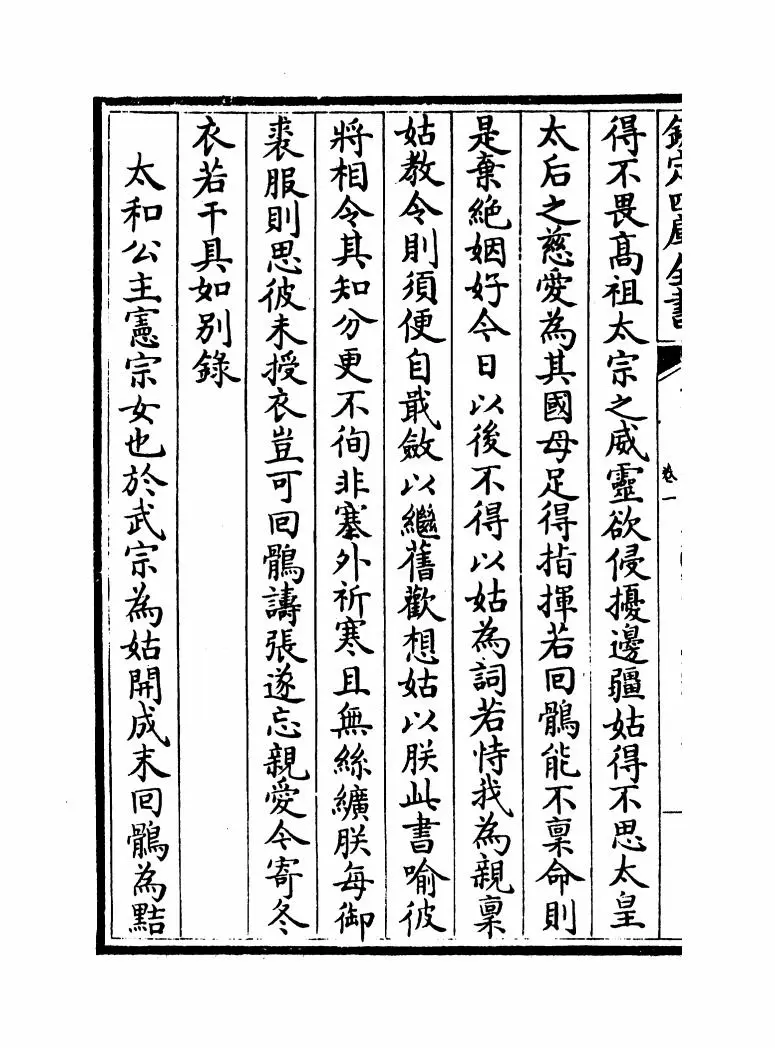 欽定四庫全書
卷一
得不畏髙祖太宗之威靈欲侵擾邊疆姑得不思太皇
太后之慈愛為其國母足得指揮若回鶻能不稟命則
是棄絶姻好今日以後不得以姑為詞若恃我為親稟
姑教令則須便自戢斂以繼舊歡想姑以朕此書喻彼
將相令其知分更不徇非塞外祈寒且無絲纊朕每御
裘服則思彼未授衣豈可回鶻譸張遂忘親愛今寄冬
衣若干具如别錄
太和公主憲宗女也於武宗為姑開成末回鶻為黠